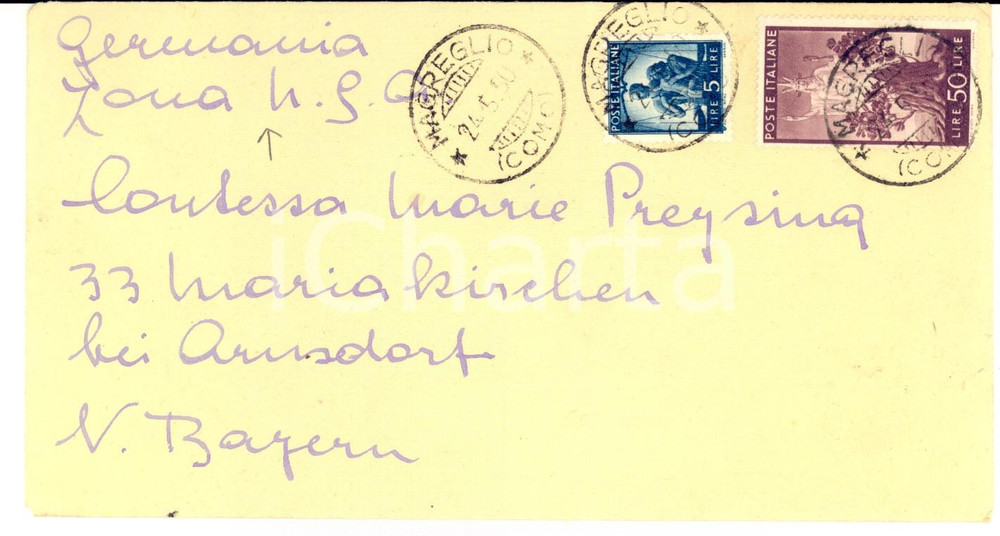 Germania
Zona U.S.A.
Contessa Marie Preysing
33 Mariakirchen
bei Arnsdorf
N. Bayern
* MAGREGLIO *
24.5.50
(COMO)
POSTE ITALIANE
LIRE 5 LIRE
MAGREGLIO *
POSTE ITALIANE
LIRE 50 LIRE
* MAGREGLIO
(COMO)
iCharta